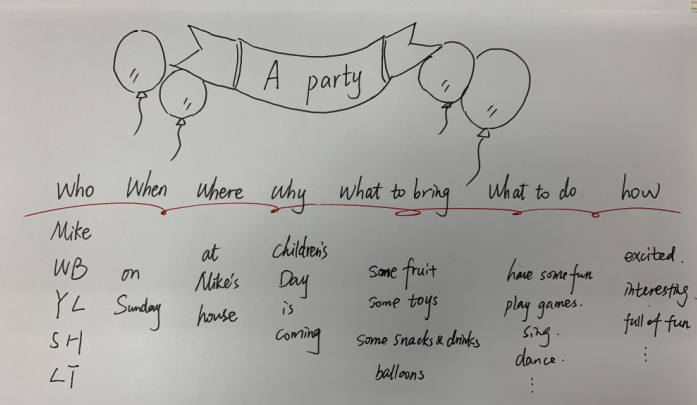 A party
Who When Where Why What to bring What to do how
Mike
WB
YL
SH
LT
on
Sunday
at
Mike's
house
Children's
Day
is
coming
Some fruit
Some toys
Some snacks & drinks
balloons
have some fun
play games.
sing.
dance.
⋮
excited.
interesting.
full of fun
⋮